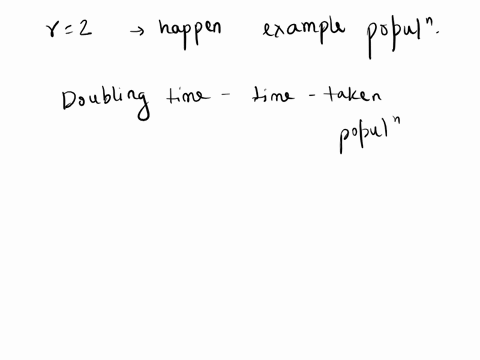 r=2 → happen example populⁿ.
Doubling time - time - taken
populⁿ